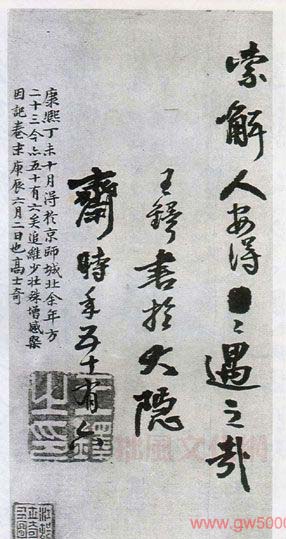 索解人安得遇之哉
王鐸書於大隱
齋時年五十有六
康熙丁未十月得於京師城北余年方
二十三今亦五十有六矣追維少壯殊增感槩
因記卷末庚辰六月二日也高士奇
王鐸之印
www.gw5000